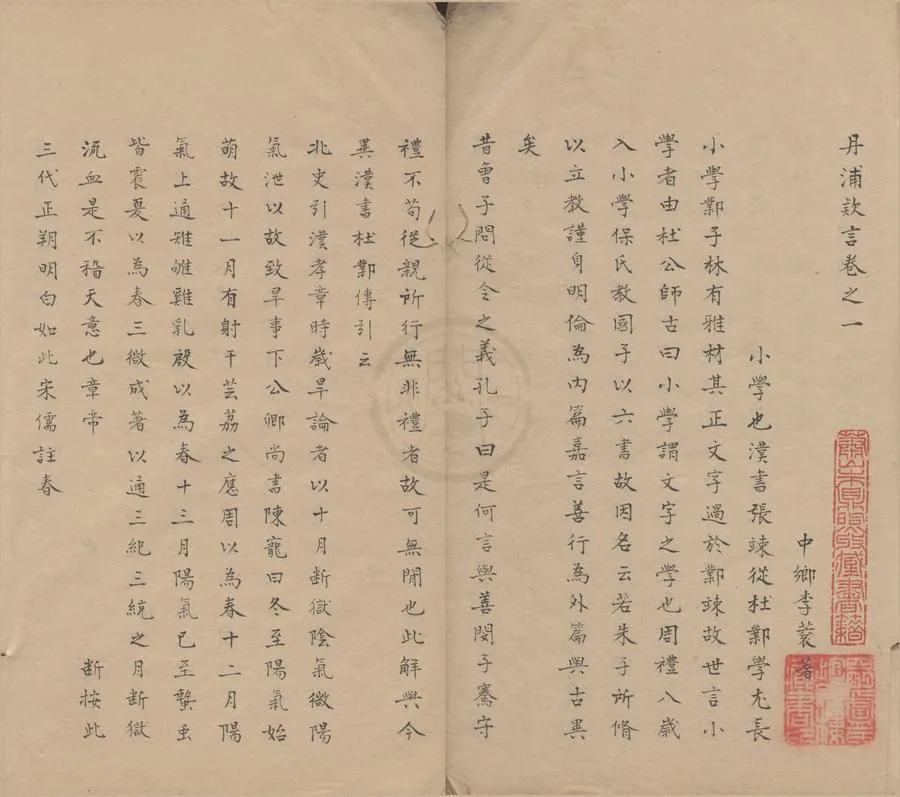 丹浦欵言卷之一
中鄉李蓘著
小學也漢書張竦從杜鄴學尤長
小學鄴子林有雅材其正文字過於鄴竦故世言小
學者由杜公師古曰小學謂文字之學也周禮八歲
入小學保氏教國子以六書故因名云若朱子所脩
以立教謹身明倫為內篇嘉言善行為外篇與古異
矣
昔曾子問從令之義孔子曰是何言與善閔子騫守
禮不苟從親所行無非禮者故可無間也此解與今
異漢書杜鄴傳引云
北史引漢孝章時歲旱論者以十月断獄陰氣微陽
氣泄以故致旱事下公卿尚書陳寵曰冬至陽氣始
萌故十一月有射干芸荔之應周以為春十二月陽
氣上通雉雊雞乳殷以為春十三月陽氣已至蟄虫
皆震夏以為春三微成著以通三紀三統之月断獄
流血是不稽天意也章帝
断按此
三代正朔明白如此宋儒註春